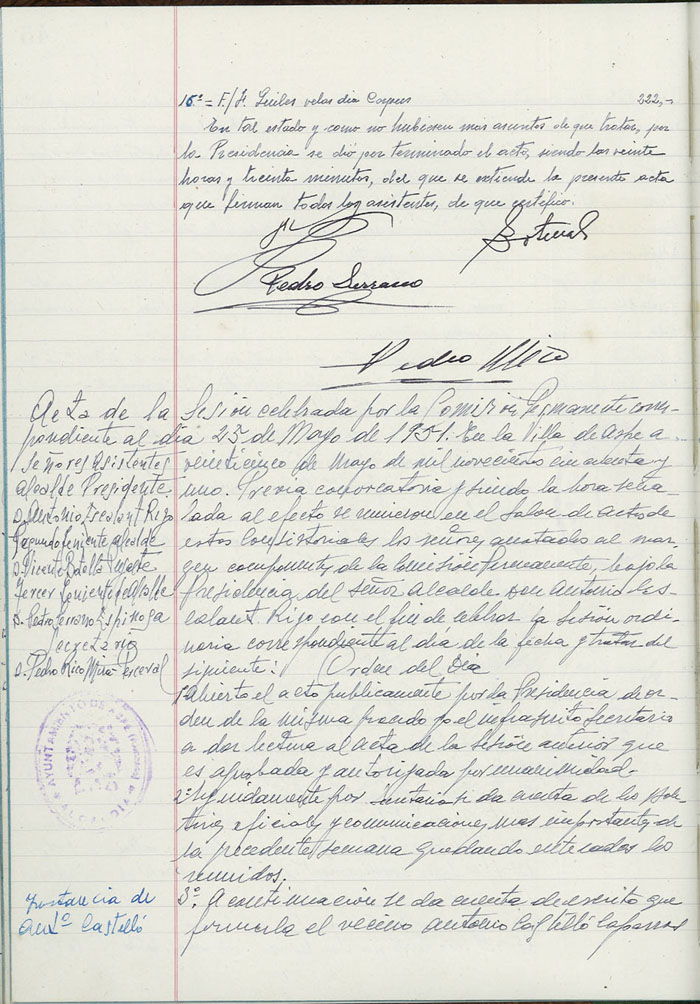 16º = F/ F. velas dia Corpus 222,-
En tal estado y como no hubiesen mas asuntos de que tratar, por
la Presidencia se dió por terminado el acto, siendo las veinte
horas y treinta minutos, del que se extiende la presente acta
que firman todos los asistentes, de que certifico.
Pedro Serrano
Pedro Miró
Acta de la Sesión celebrada por la Comisión Permanente corres-
pondiente al día 25 de Mayo de 1951. En la Villa de Aspe a
veinticinco de Mayo de mil novecientos cincuenta y
uno. Previa convocatoria y siendo la hora seña-
lada al efecto se reunieron en el Salon de actos de
estos Consistoriales los señores anotados al mar-
gen componentes de la Comisión Permanente, bajo la
Presidencia del señor Alcalde Don Antonio Es-
calant Rizo con el fin de celebrar la sesión ordi-
naria correspondiente al día de la fecha y tratar del
siguiente: (Orden del Dia
Señores Asistentes
Alcalde Presidente
D. Antonio Escalant Rizo
Segundo Teniente alcalde
D. Vicente Botella
Tercer Teniente de Alcalde
D. Pedro Serrano Espinosa
Secretario
D. Pedro Rico Perceval
AYUNTAMIENTO DE ASPE (Alicante)
1º Abierto el acto publicamente por la Presidencia de or-
den de la misma procedo yo el infrascrito Secretario
a dar lectura al acta de la sesión anterior que
es aprobada y autorizada por unanimidad.
2º Seguidamente por Secretaria se da cuenta de los Bole-
tines oficiales y comunicaciones mas importantes de
la precedente semana quedando enterados los
reunidos.
Instancia de
Antº Castelló
3º. A continuación se da cuenta de escrito que
formula el vecino Antonio Castelló Caparros